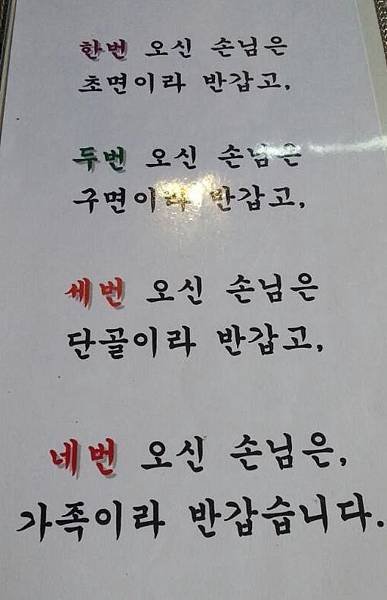 한번 오신 손님은
초면이라 반갑고,
두번 오신 손님은
구면이라 반갑고,
세번 오신 손님은
단골이라 반갑고,
네번 오신 손님은,
가족이라 반갑습니다.